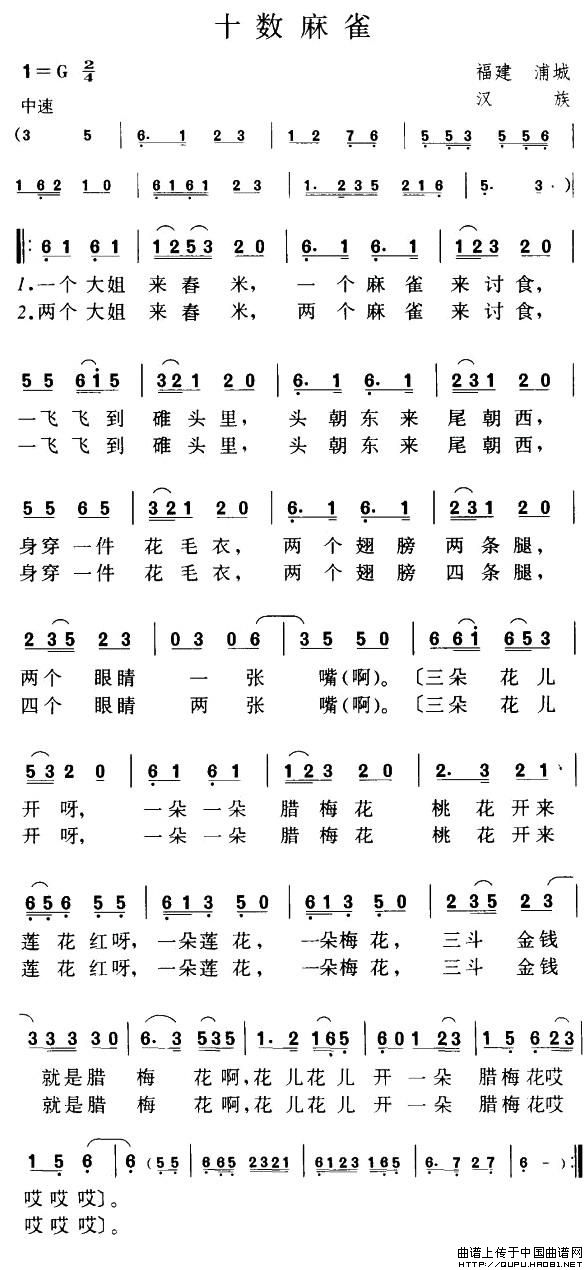 十数麻雀
1=G 2/4
福建 浦城
中速
汉 族
(3 5 | 6. 1 2 3 | 1 2 7 6 | 5 5 3 5 5 6 |
1 6 2 1 0 | 6 1 6 1 2 3 | 1. 2 3 5 2 1 6 | 5. 3 · )
‖: 6 1 6 1 | 1 2 5 3 2 0 | 6. 1 6. 1 | 1 2 3 2 0 |
1.一个大姐 来舂米， 一个麻雀 来讨食，
2.两个大姐 来舂米， 两个麻雀 来讨食，
5 5 6 i 5 | 3 2 1 2 0 | 6. 1 6. 1 | 2 3 1 2 0 |
一飞飞到 碓头里， 头朝东来 尾朝西，
一飞飞到 碓头里， 头朝东来 尾朝西，
5 5 6 5 | 3 2 1 2 0 | 6. 1 6. 1 | 2 3 1 2 0 |
身穿一件 花毛衣， 两个翅膀 两条腿，
身穿一件 花毛衣， 两个翅膀 四条腿，
2 3 5 2 3 | 0 3 0 6 | 3 5 5 0 | 6 6 i 6 5 3 |
两个眼睛 一张 嘴(啊)。〔三朵花儿
四个眼睛 两张 嘴(啊)。〔三朵花儿
5 3 2 0 | 6 1 6 1 | 1 2 3 2 0 | 2. 3 2 1 |
开呀， 一朵一朵 腊梅花 桃花开来
开呀， 一朵一朵 腊梅花 桃花开来
6 5 6 5 5 | 6 1 3 5 0 | 6 1 3 5 0 | 2 3 5 2 3 |
莲花红呀，一朵莲花， 一朵梅花， 三斗金钱
莲花红呀，一朵莲花， 一朵梅花， 三斗金钱
3 3 3 3 0 | 6. 3 5 3 5 | 1. 2 1 6 5 | 6 0 1 2 3 | 1 5 6 2 3 |
就是腊 梅花啊，花儿花儿 开一朵 腊梅花哎
就是腊 梅花啊，花儿花儿 开一朵 腊梅花哎
1 5 6 | 6 (5 5 | 6 6 5 2 3 2 1 | 6 1 2 3 1 6 5 | 6. 7 2 7 | 6 -) :‖
哎哎哎〕。
哎哎哎〕。
曲谱上传于中国曲谱网
HTTP://QUPU.HAO81.NET